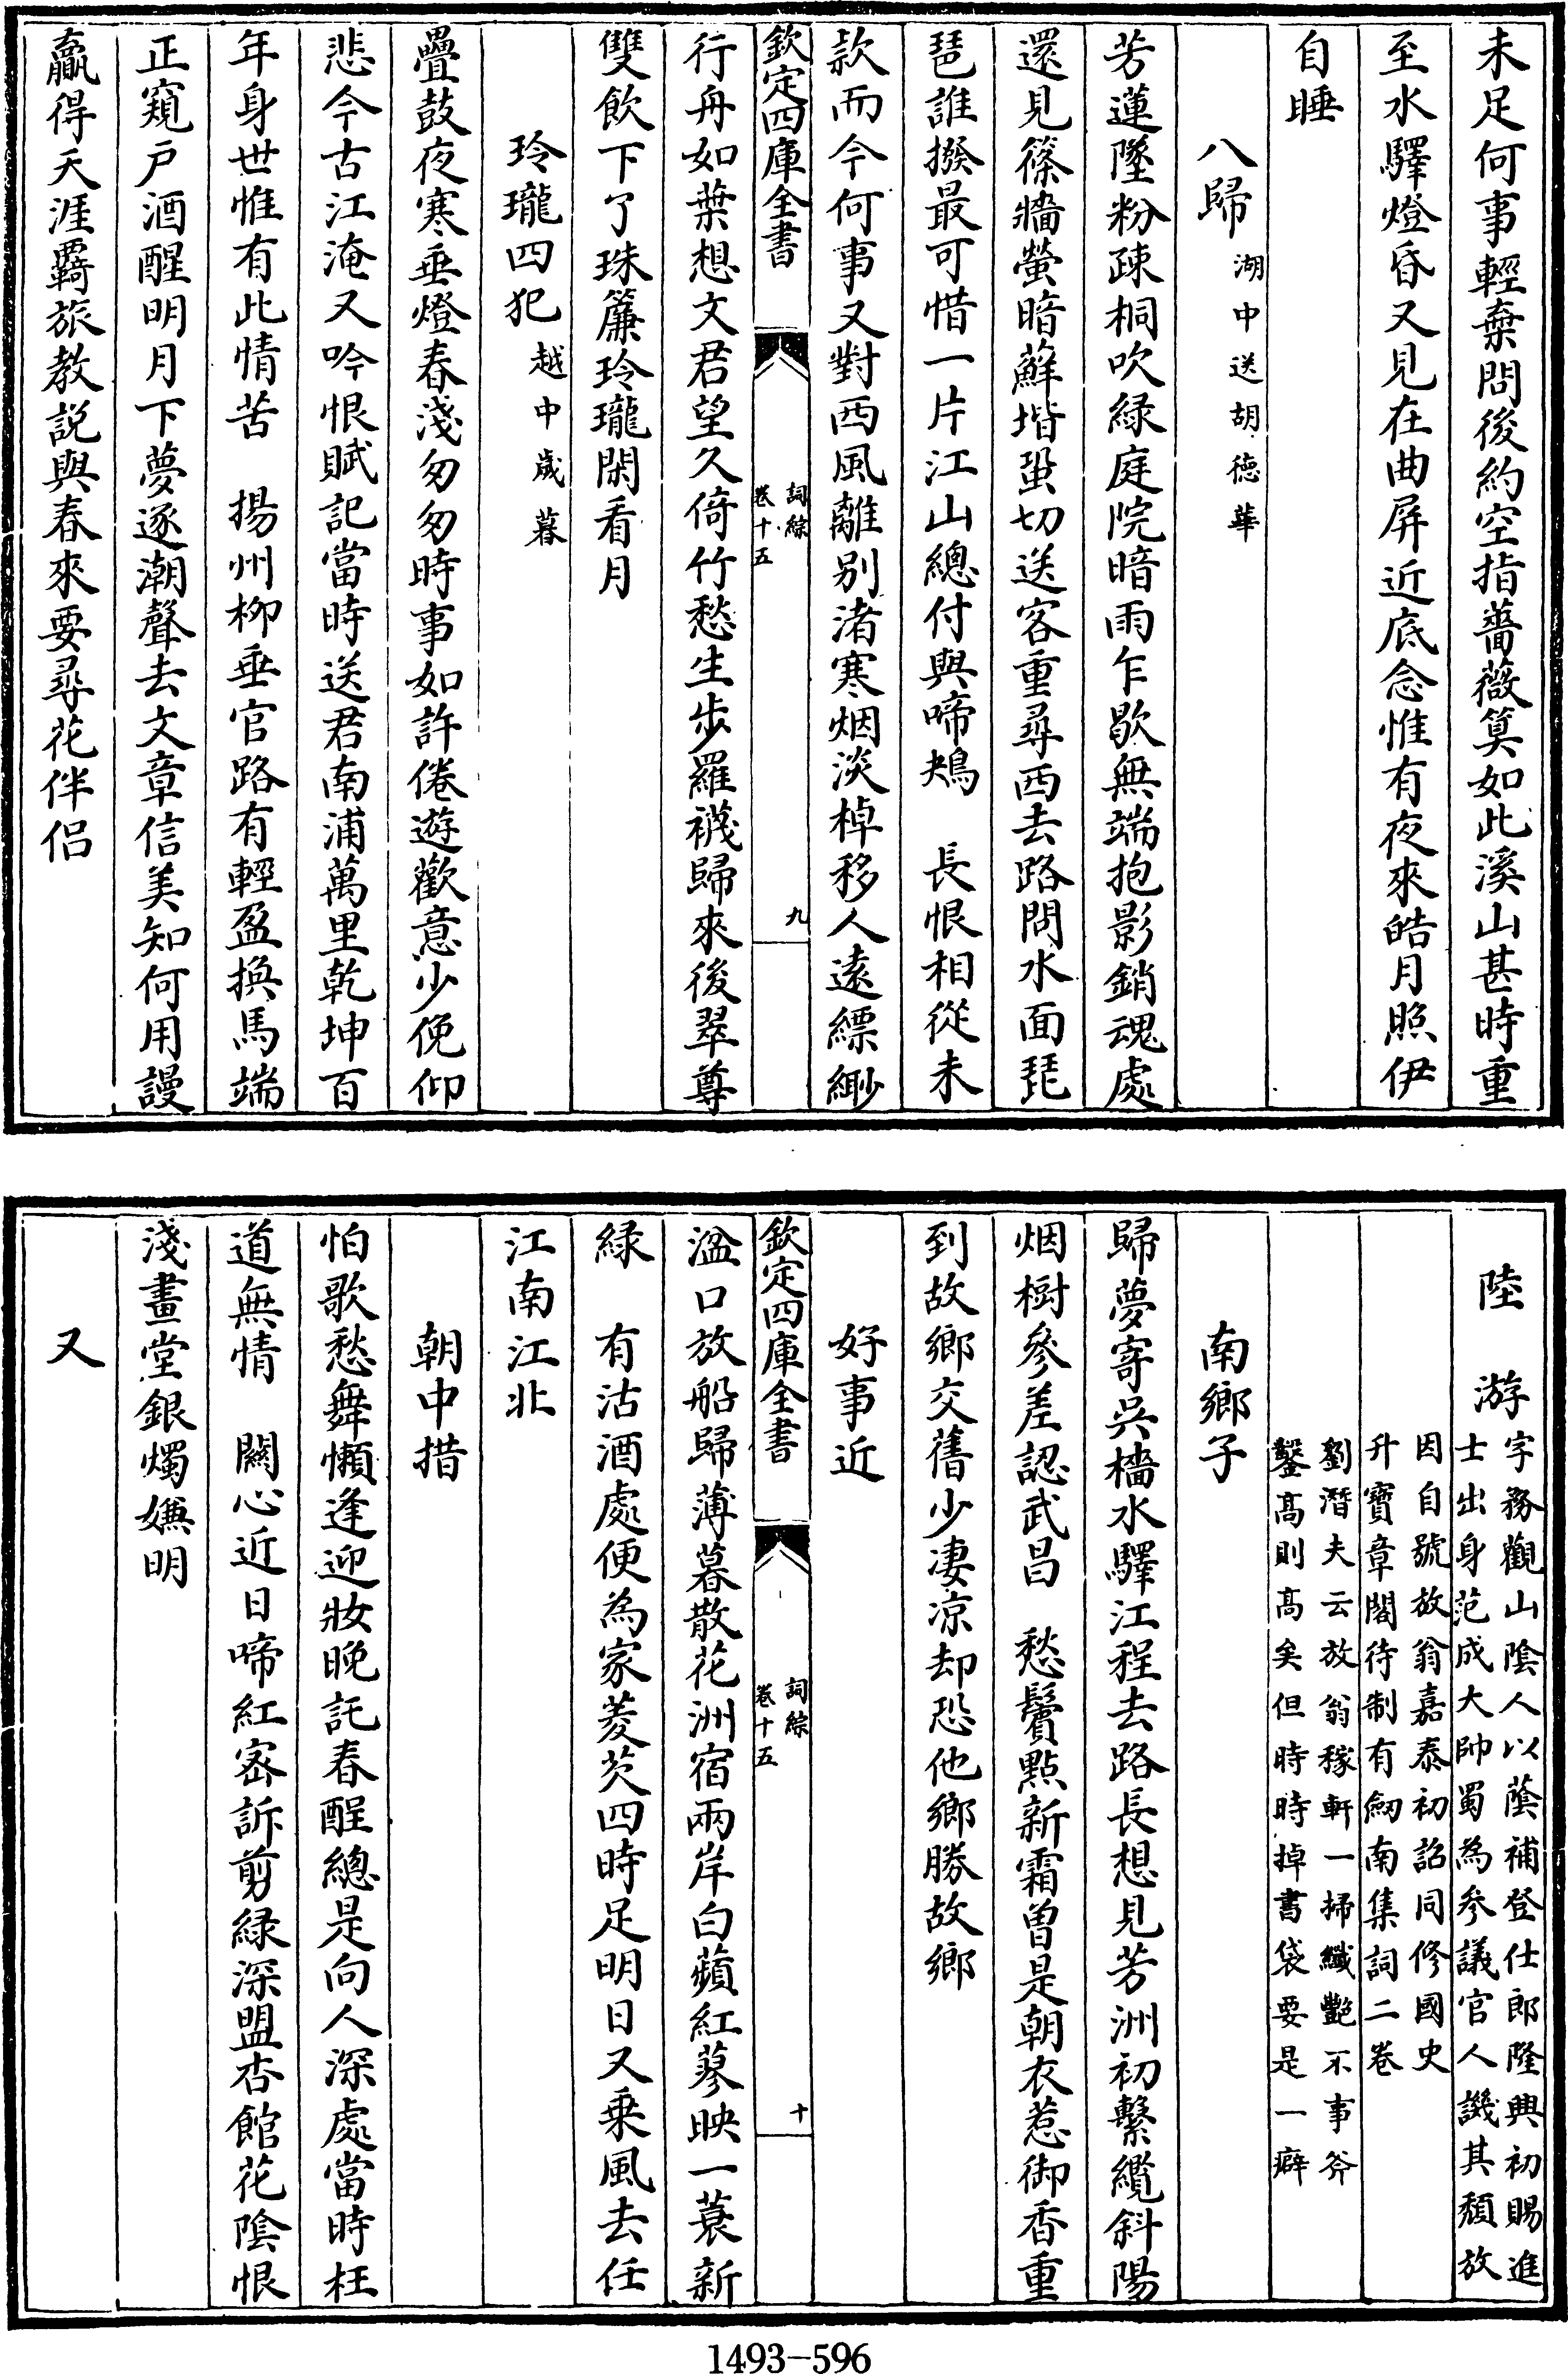 未足何事輕棄問後約空指薔薇筭如此溪山甚時重
至水驛燈昏又見在曲屏近底念惟有夜來皓月照伊
自睡
八歸 湖中送胡德華
芳蓮墜粉疎桐吹緑庭院暗雨乍歇無端抱影銷魂處
還見篠牆螢暗蘚堦蛩切送客重尋西去路問水面琵
琶誰撥最可惜一片江山總付與啼鴂 長恨相從未
款而今何事又對西風離别渚寒烟淡棹移人遠縹緲
欽定四庫全書 詞綜 卷十五 九
行舟如葉想文君望久倚竹愁生步羅襪歸來後翠尊
雙飲下了珠簾玲瓏閑看月
玲瓏四犯 越中歲暮
疊鼓夜寒垂燈春淺匆匆時事如許倦遊歡意少俛仰
悲今古江淹又吟恨賦記當時送君南浦萬里乾坤百
年身世惟有此情苦 揚州柳垂官路有輕盈換馬端
正窺户酒醒明月下夢逐潮聲去文章信美知何用謾
贏得天涯羇旅教説與春來要尋花伴侣
陸 游 字務觀山陰人以蔭補登仕郎隆興初賜進
士出身范成大帥蜀為參議官人譏其頽放
因自號放翁嘉泰初詔同修國史
升寶章閣待制有劒南集詞二卷
劉潛夫云放翁稼軒一掃纎艷不事斧
鑿髙則髙矣但時時掉書袋要是一癖
南鄉子
歸夢寄吳檣水驛江程去路長想見芳洲初繫纜斜陽
烟樹參差認武昌 愁鬢點新霜曽是朝衣惹御香重
到故鄉交舊少淒凉却恐他鄉勝故鄉
好事近
欽定四庫全書 詞綜 卷十五 十
湓口放船歸薄暮散花洲宿兩岸白蘋紅蓼映一蓑新
緑 有沽酒處便為家菱芡四時足明日又乗風去任
江南江北
朝中措
怕歌愁舞懶逢迎妝晚託春酲總是向人深處當時枉
道無情 闗心近日啼紅宻訴剪緑深盟杏館花陰恨
淺畫堂銀燭嫌明
又
1493-596